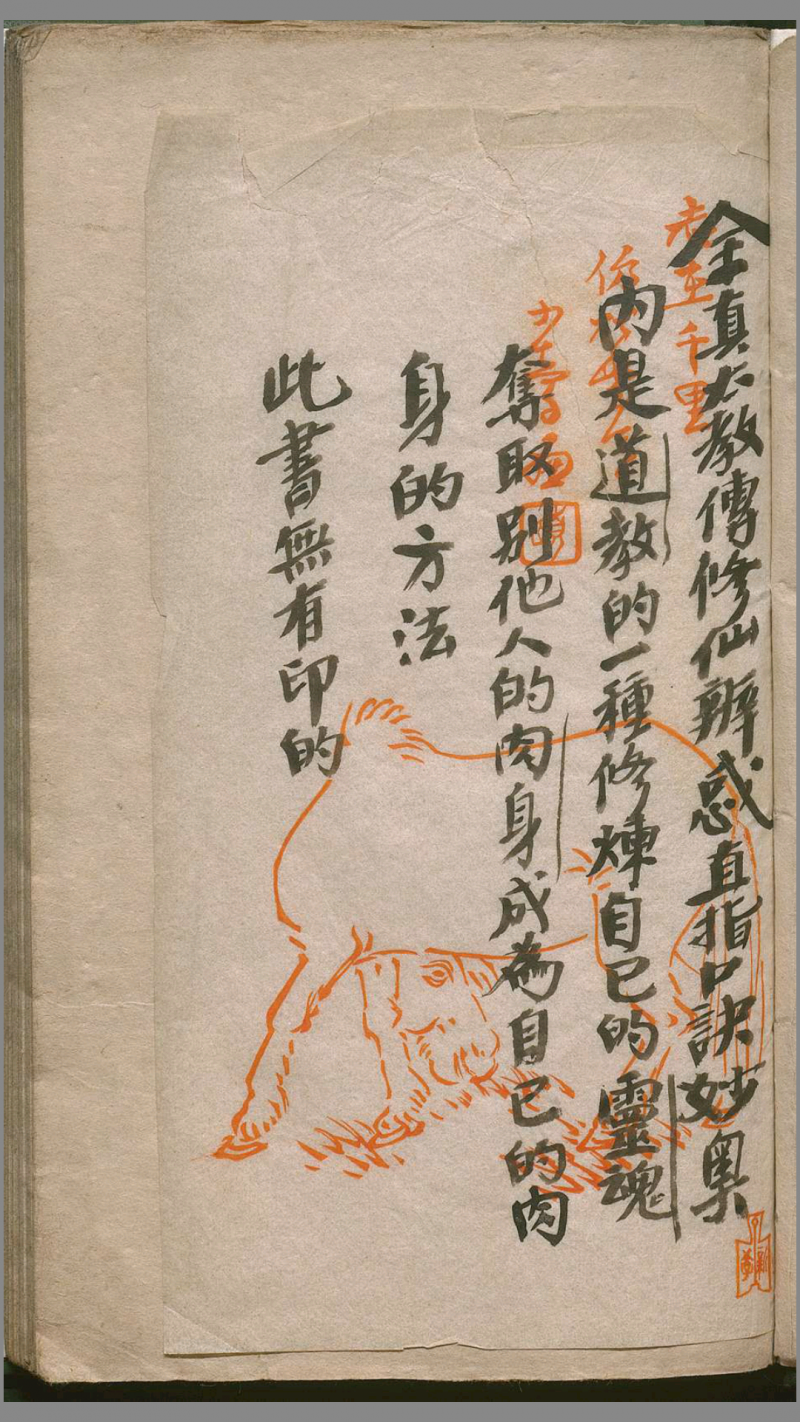 全真大教傳修仙辨惑直指口訣妙奥
内是道教的一種修煉自己的靈魂
奪取別他人的肉身成為自己的肉
身的方法
此書無有印的
千里